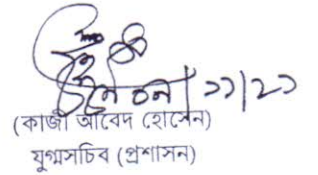 ১১/২১
(কাজী আবেদ হোসেন)
যুগ্মসচিব (প্রশাসন)